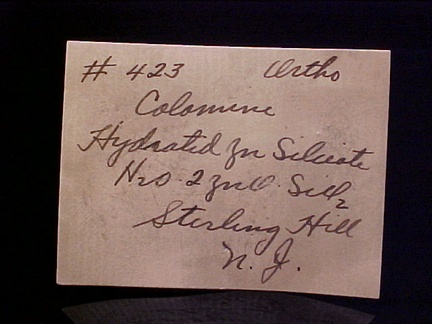 # 423 Ortho
Colomine
Hydrated Zn Silicate
H2O 2 ZnO SiO2
Sterling Hill
N. J.